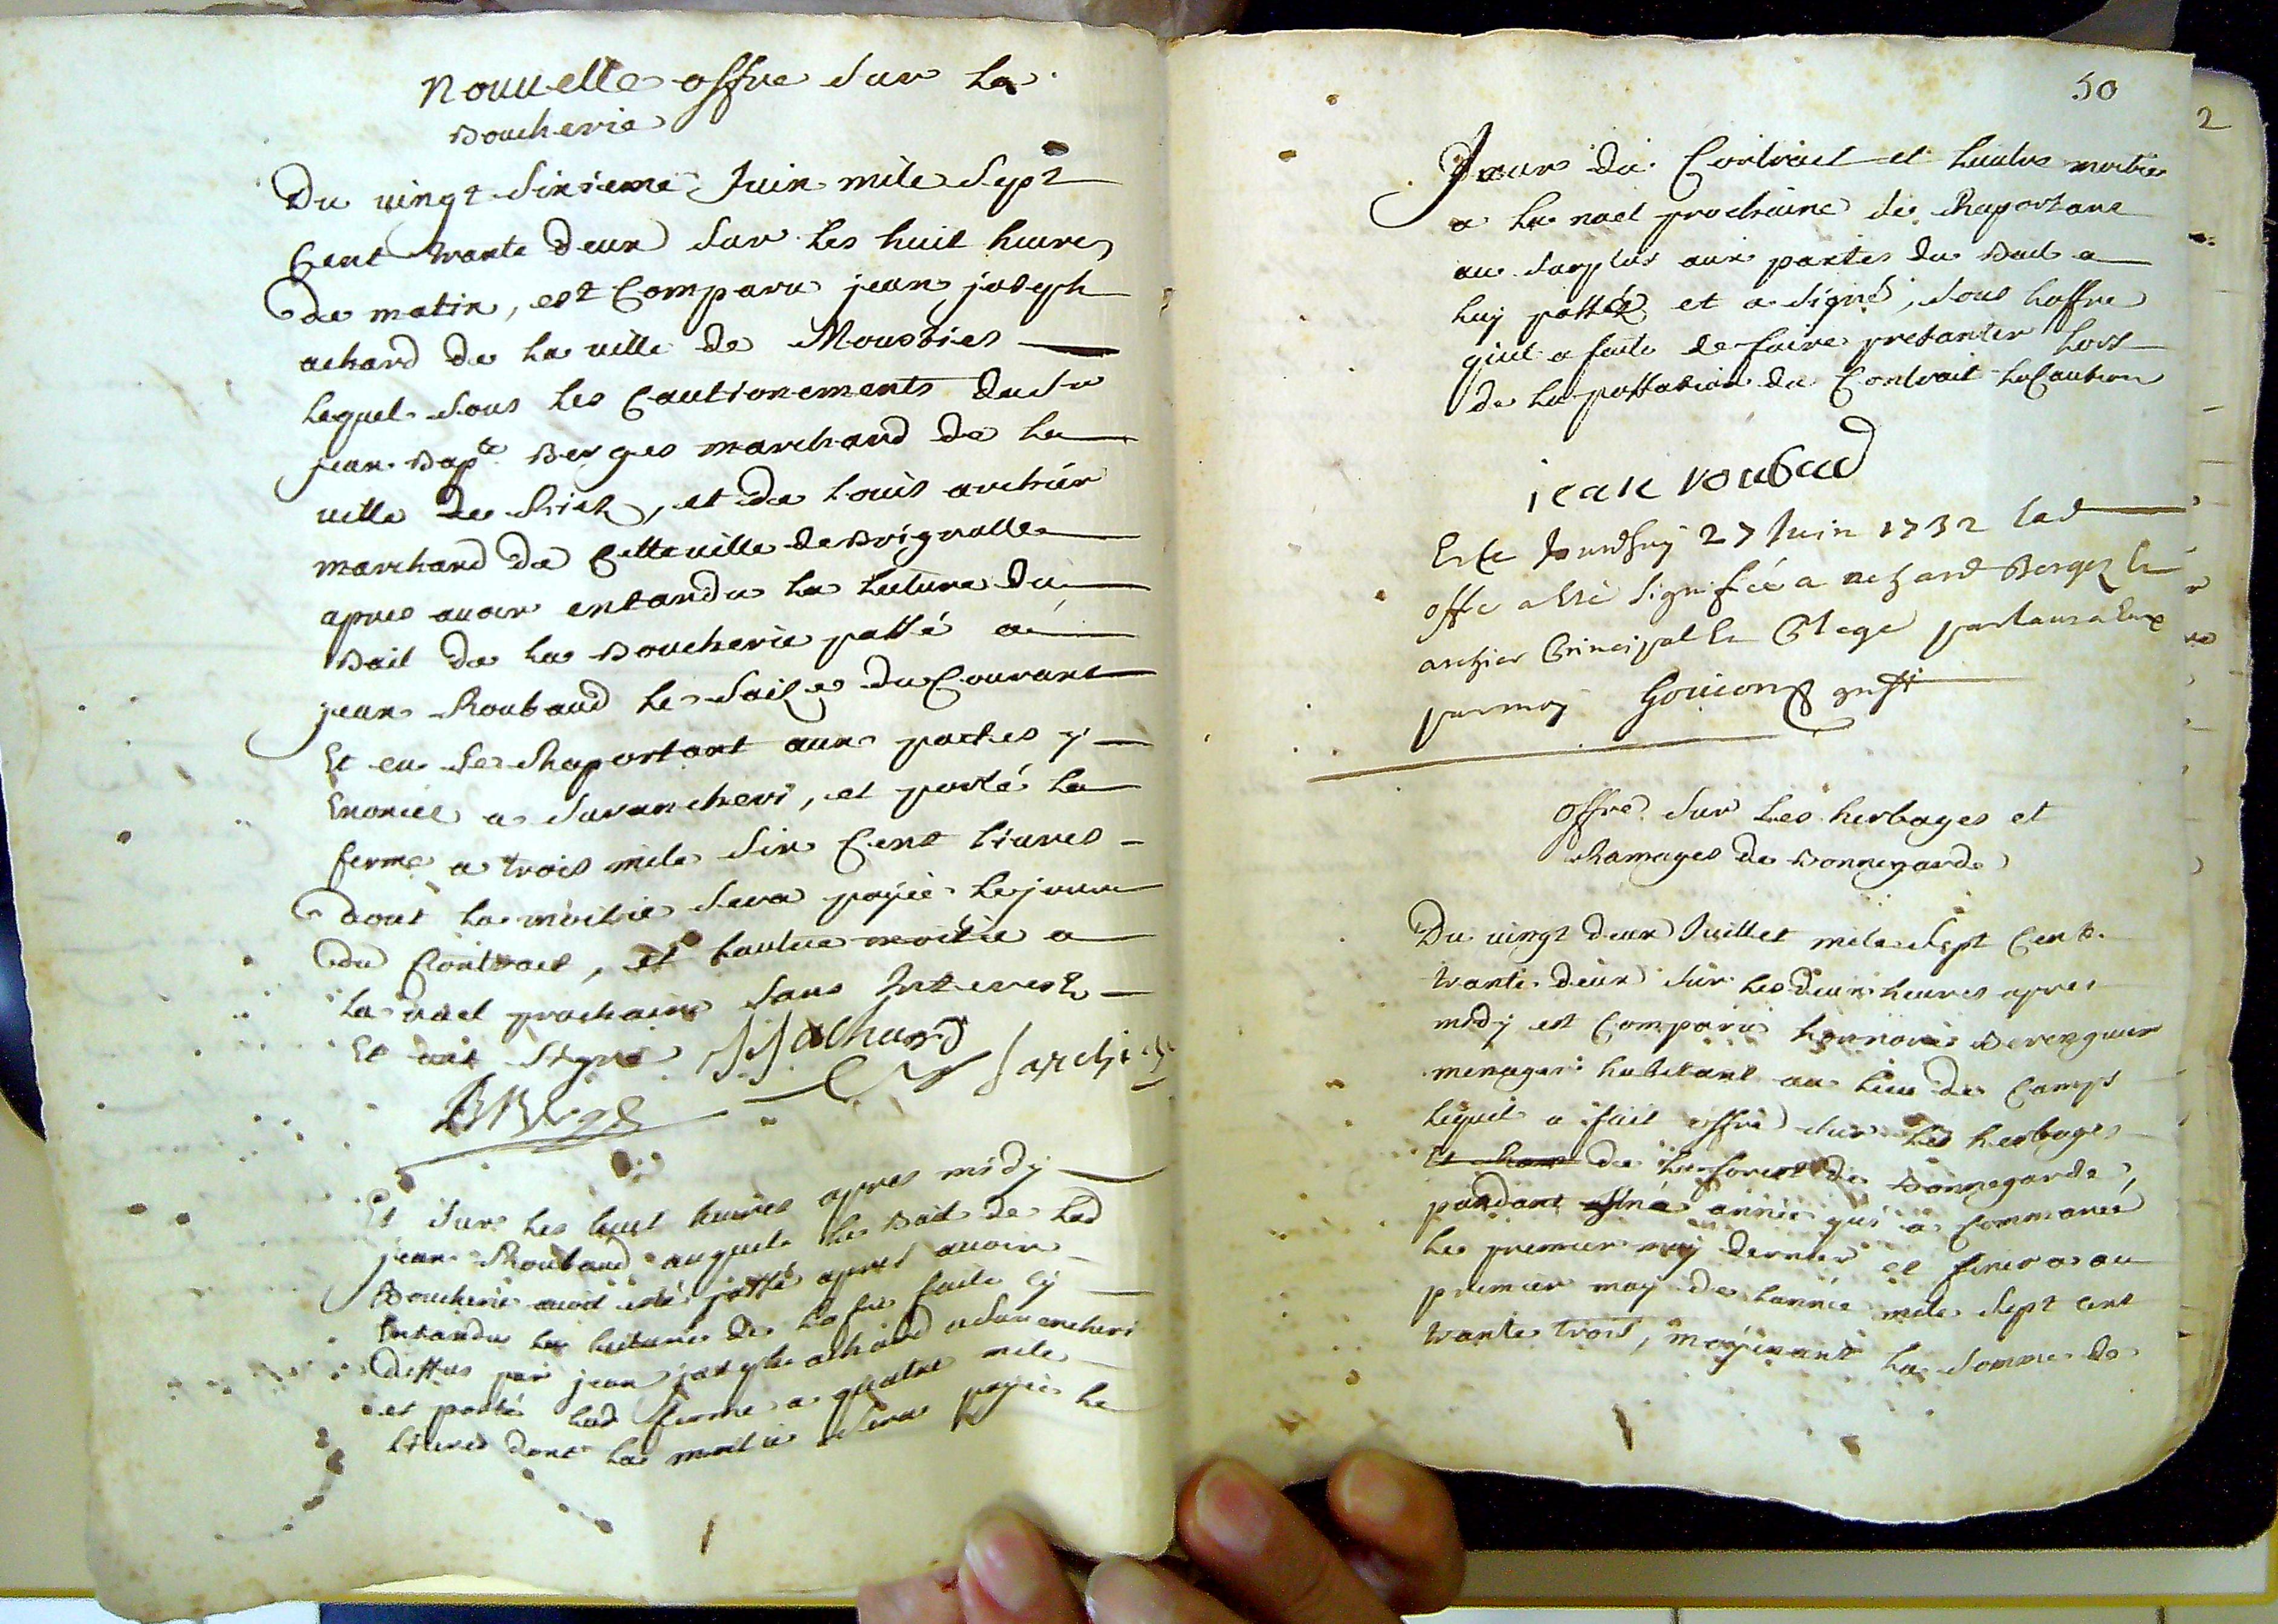 nouuelle offre sur La
Boucherie
Du uingt sixieme Juin mile sept
Cent trante deux sur les huit heures
de matin, est Comparu jean joseph
achard de La uille de Moustiers
Lequel sous les Cautionements du sr
jean Bapte Berges marchand de La
uille de Riez, et de Louis archier
marchand de Cette uille de Brignolle
apres auoir entandu La Lecture du
Bail de La Boucherie passé a
jean Roubaud le saize du Courant
Et en se Raportant aux pactes y
Enoncés a surancheri, et porté La
ferme a trois mile six Cent liures
dont La moitié sera payée le jour
du Contract, et Lautre moitié a
La noel prochaine sans Interest
Et ont signé JJ achard
L archier
B Berges
Et sur les huit heures apres midy
jean Roubaud auquel le Bail de Lad
Boucherie auoit esté passé apres auoir
Entandu La lecture de Lofre faite cy
dessus par jean joseph achard a suranchéri
et porté Lad ferme a quatre mile
liures dont La moitié sera payée le
50
2
Jour du Contract et Lautre moitié
a La noel prochaine se Raportant
au surplus aux pactes du Bail a
Luy passé et a signé, sous Loffre
quil a faite de faire presanter Lors
de La passation du Contrait La Caution
jean roubaud
Et Ce Jourdhuy 27 Juin 1732 lad
offre a esté signifiée a achard Berges Et
archier Principal Et Plege parlant a Eux
par moy Gouion
offre sur Les herbages et
Ramages de Bonnegarde
Du uingt deux Juillet mile sept Cent
trante deux sur les deux heures apres
midy est Comparu honnoré Berenguier
menager habitant au lieu de Camps
lequel a fait offre sur les herbages
de La forest de Bonnegarde,
pandant année qui a Commancé
Le premier may dernier et finira au
premier may de Lannée mile sept cent
trante trois, moyenant La somme de